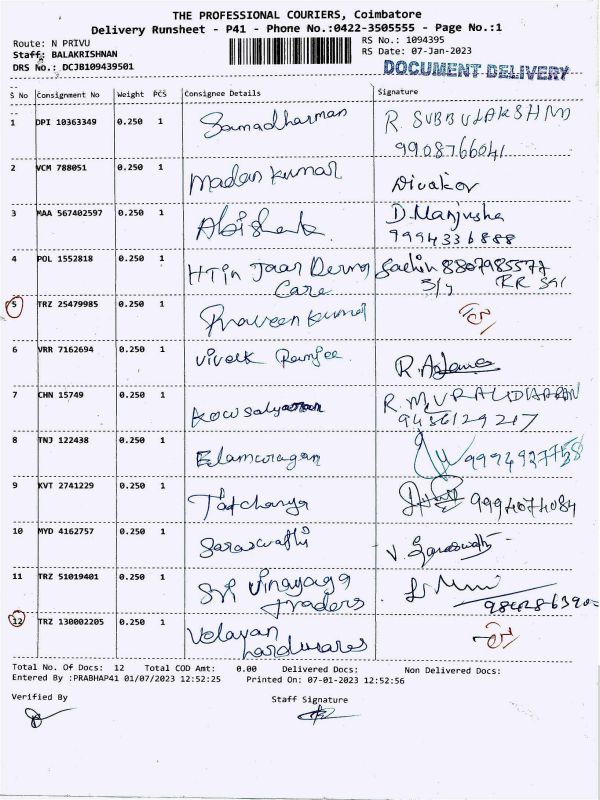 THE PROFESSIONAL COURIERS, Coimbatore
Delivery Runsheet - P41 - Phone No.:0422-3505555 - Page No.:1
Route: N PRIVU RS No.: 1094395
Staff: BALAKRISHNAN RS Date: 07-Jan-2023
DRS No.: DCJB109439501 DOCUMENT DELIVERY
S No Consignment No Weight PCS Consignee Details Signature
1 DPI 10363349 0.250 1 Samadharman R. SUBBULAKSHMI
9908766041
2 VCM 788051 0.250 1 Madan Kumar Divakar
3 MAA 567402597 0.250 1 Abishek D. Manjusha
9994336888
4 POL 1552818 0.250 1 HTin Jaar Derma Sachin 8807985577
Care
5 TRZ 25479985 0.250 1 Praveen Kumar
6 VRR 7162694 0.250 1 Vivek Ranjee R.
7 CHN 15749 0.250 1 Kowsalya R. MURALIDHARAN
9456129217
8 TNJ 122438 0.250 1 Elamuragan 9994927758
9 KVT 2741229 0.250 1 Tatcharya 9994074084
10 MYD 4162757 0.250 1 Saraswathi V. Saraswathi
11 TRZ 51019401 0.250 1 Sri Vinayaga
Traders
12 TRZ 130002205 0.250 1 Velavan
hardwares
Total No. Of Docs: 12 Total COD Amt: 0.00 Delivered Docs: Non Delivered Docs:
Entered By :PRABHAP41 01/07/2023 12:52:25 Printed On: 07-01-2023 12:52:56
Verified By Staff Signature